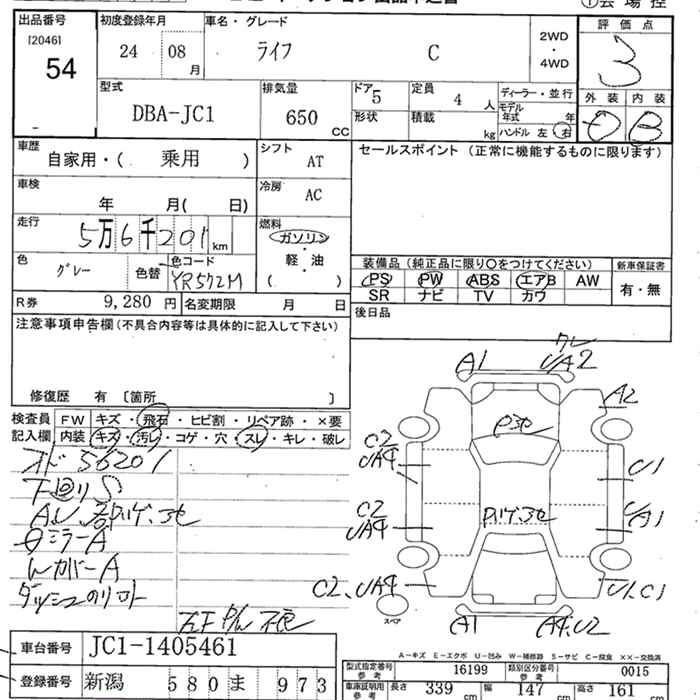 ①会場控
出品番号
[2046]
54
初度登録年月
24 08
月
車名・グレード
ライフ C
2WD
・
4WD
評価点
3
外装 内装
B
型式
DBA-JC1
排気量
650
cc
ドア 5
形状
定員
4 人
積載
kg
ディーラー・並行
モデル
年式 年
ハンドル 左 右
車歴
自家用・( 乗用 )
シフト
AT
セールスポイント (正常に機能するものに限ります)
車検
年 月( 日)
冷房
AC
走行
5万6千201 km
燃料
ガソリン
・
軽・油
( )
色
グレー
色替
色コード
YR572M
装備品 (純正品に限り〇をつけてください)
新車保証書
PS PW ABS エアB AW
SR ナビ TV カワ
有・無
R券
9,280 円
名変期限 月 日
後日品
注意事項申告欄(不具合内容等は具体的に記入して下さい)
修復歴 有 [箇所 ]
検査員
記入欄
FW キズ・飛石・ヒビ割・リペア跡・×要
内装 キズ・汚レ・コゲ・穴・スレ・キレ・破レ
オド 56201
下回りS
ミラーA
カバーA
A1
UA2
A2
C2
UA4
U1
C2
UA4
A1
C2、UA4
U1.C1
スペア
A1
A4.U2
車台番号
JC1-1405461
登録番号
新潟 580 ま 973
A-キズ E-エクボ U-凹み W-補修跡 S-サビ C-腐食 XX-交換済
型式指定番号
参考
16199
類別区分番号
参考
0015
車庫証明用
参考
長さ 339
幅 147
高さ 161